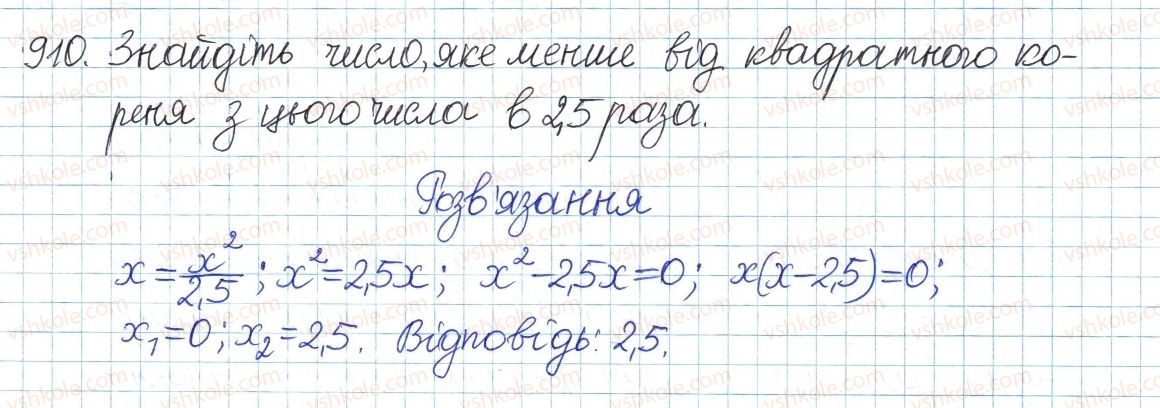 910. Знайдіть число, яке менше від квадратного ко-
реня з цього числа в 2,5 раза.
Розв'язання
x = x²/2,5 ; x² = 2,5x ; x² - 2,5x = 0 ; x(x - 2,5) = 0 ;
x₁ = 0 ; x₂ = 2,5. Відповідь: 2,5.